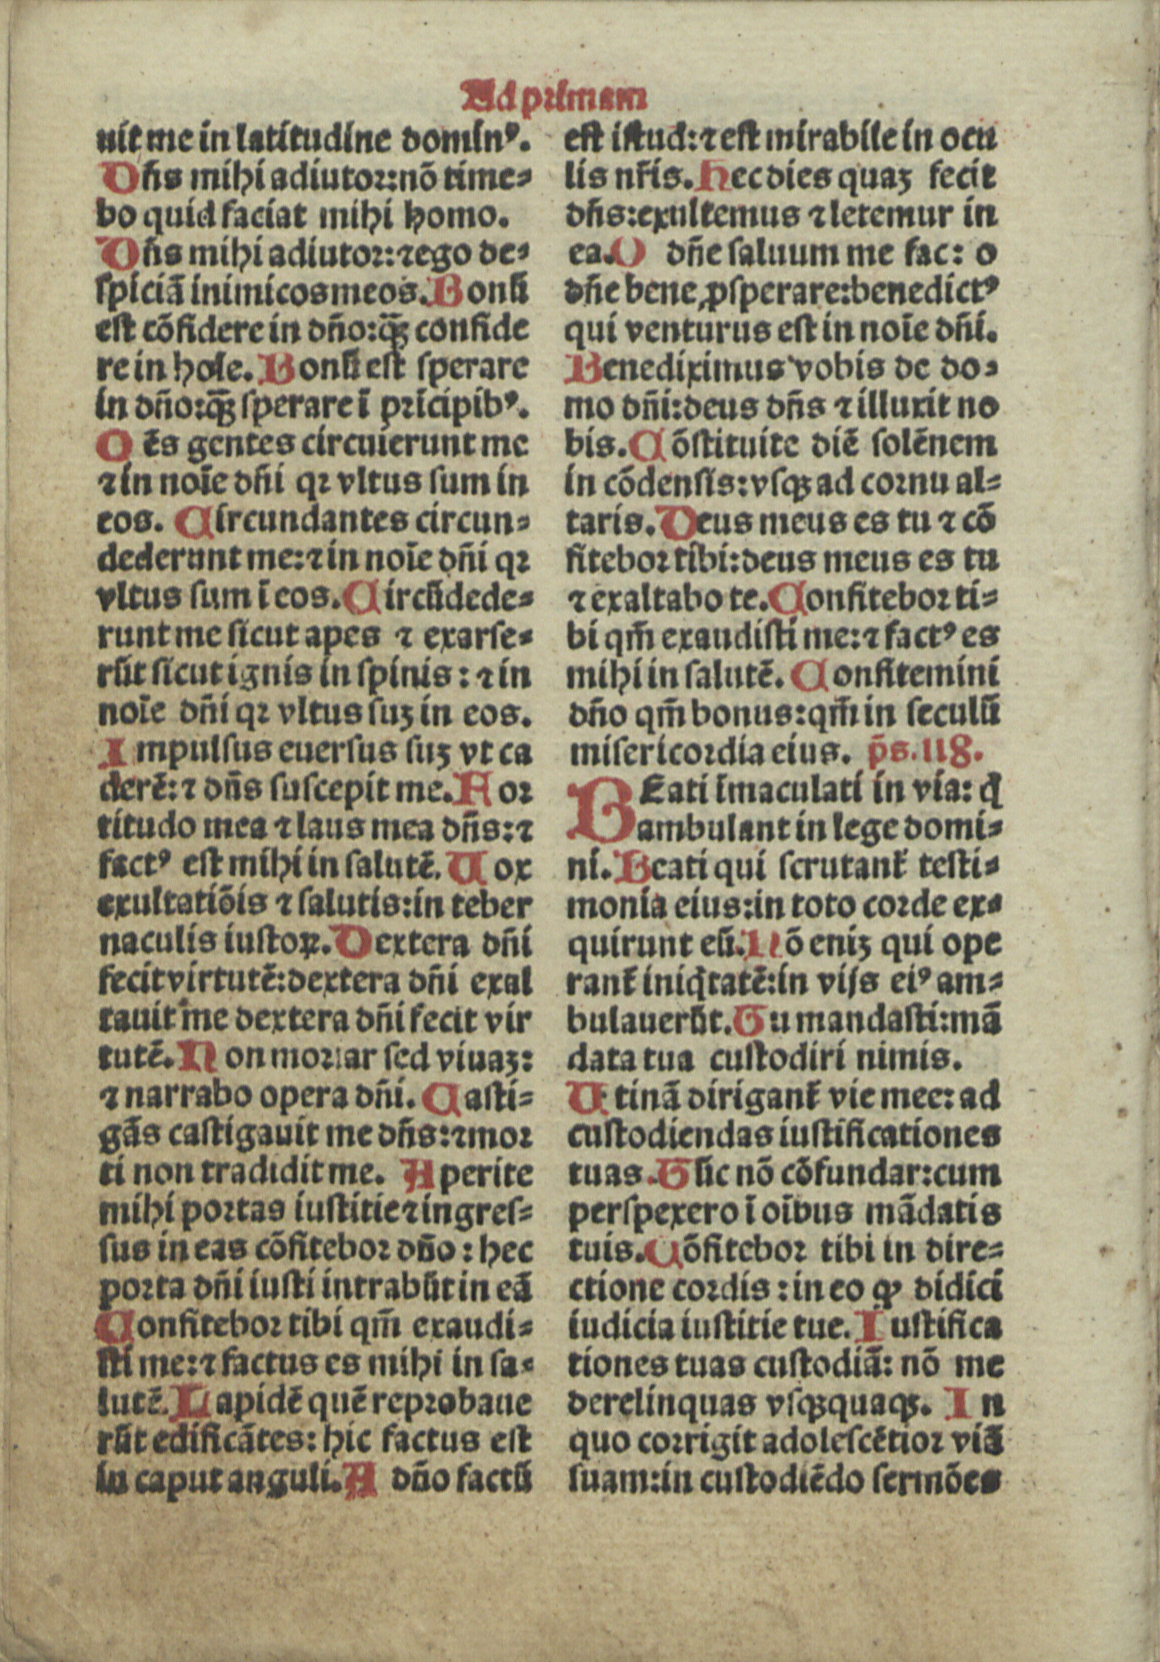 Ad primam
uit me in latitudine dominꝰ.
Dñs mihi adiutor:nõ time⸗
bo quid faciat mihi homo.
Dñs mihi adiutor:⁊ego de⸗
spiciã inimicos meos.Bonũ
est cõfidere in dño:q̃ꝫ confide
re in hoĩe.Bonũ est sperare
in dño:q̃ꝫ sperare ĩ prĩcipibꝰ.
Oẽs gentes circuierunt me
⁊ in noĩe dñi qꝛ vltus sum in
eos. Circundantes circun⸗
dederunt me:⁊ in noĩe dñi qꝛ
vltus sum ĩ eos.Circũdede⸗
runt me sicut apes ⁊ exarse⸗
rũt sicut ignis in spinis: ⁊ in
noĩe dñi qꝛ vltus suꝫ in eos.
Impulsus euersus suꝫ vt ca
derẽ:⁊ dñs suscepit me.For
titudo mea ⁊ laus mea dñs:⁊
factꝰ est mihi in salutẽ.Uox
exultatiõis ⁊ salutis:in teber
naculis iustoꝝ.Dextera dñi
fecit virtutẽ:dextera dñi exal
tauit me dextera dñi fecit vir
tutẽ.Non moriar sed viuaꝫ:
⁊ narrabo opera dñi.Casti⸗
gãs castigauit me dñs:⁊ mor
ti non tradidit me. Aperite
mihi portas iustitie ⁊ ingres⸗
sus in eas cõfitebor dño: hec
porta dñi iusti intrabũt in eã
Confitebor tibi qm̃ exaudi⸗
sti me:⁊ factus es mihi in sa⸗
lutẽ.Lapidẽ quẽ reprobaue
rũt edificãtes: hic factus est
in caput anguli.A dño factũ
est istud:⁊ est mirabile in ocu
lis nr̃is.Hec dies quaꝫ fecit
dñs:exultemus ⁊ letemur in
ea.O dñe saluum me fac: o
dñe bene ꝓsperare:benedictꝰ
qui venturus est in noĩe dñi.
Benediximus vobis de do⸗
mo dñi:deus dñs ⁊ illuxit no
bis.Cõstituite diẽ solẽnem
in cõdensis:vsqꝫ ad cornu al⸗
taris.Deus meus es tu ⁊ cõ
fitebor tibi:deus meus es tu
⁊ exaltabo te.Confitebor ti⸗
bi qm̃ exaudisti me:⁊ factꝰ es
mihi in salutẽ. Confitemini
dño qm̃ bonus:qm̃ in seculũ
misericordia eius. p̃s.118.
BEati ĩmaculati in via: q̃
ambulant in lege domi⸗
ni.Beati qui scrutant̃ testi⸗
monia eius:in toto corde ex⸗
quirunt eũ.Nõ eniꝫ qui ope
rant̃ iniq̃tatẽ:in vijs eiꝰ am⸗
bulauerũt.Tu mandasti:mã
data tua custodiri nimis.
Utinã dirigant̃ vie mee: ad
custodiendas iustificationes
tuas.Tũc nõ cõfundar:cum
perspexero ĩ oĩbus mãdatis
tuis.Cõfitebor tibi in dire⸗
ctione cordis:in eo ꝙ didici
iudicia iustitie tue.Iustifica
tiones tuas custodiã: nõ me
derelinquas vsqꝫquaqꝫ. In
quo corrigit adolescẽtior viã
suam:in custodiẽdo sermões